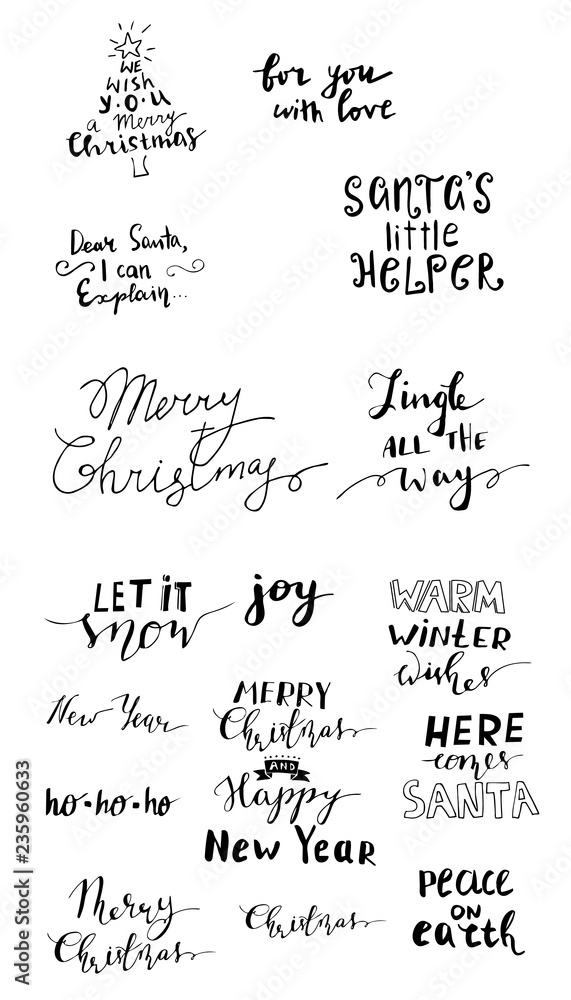 We
wish
y.o.u
a Merry
Christmas
for you
with love
Santa's
little
Helper
Dear Santa,
I can
Explain...
Merry
Christmas
Jingle
all the
way
Let it
snow
joy
Warm
Winter
wishes
New Year
Merry
Christmas
and
Happy
New Year
Here
comes
Santa
ho-ho-ho
Merry
Christmas
Christmas
Peace
on
earth
Adobe Stock | #235960633